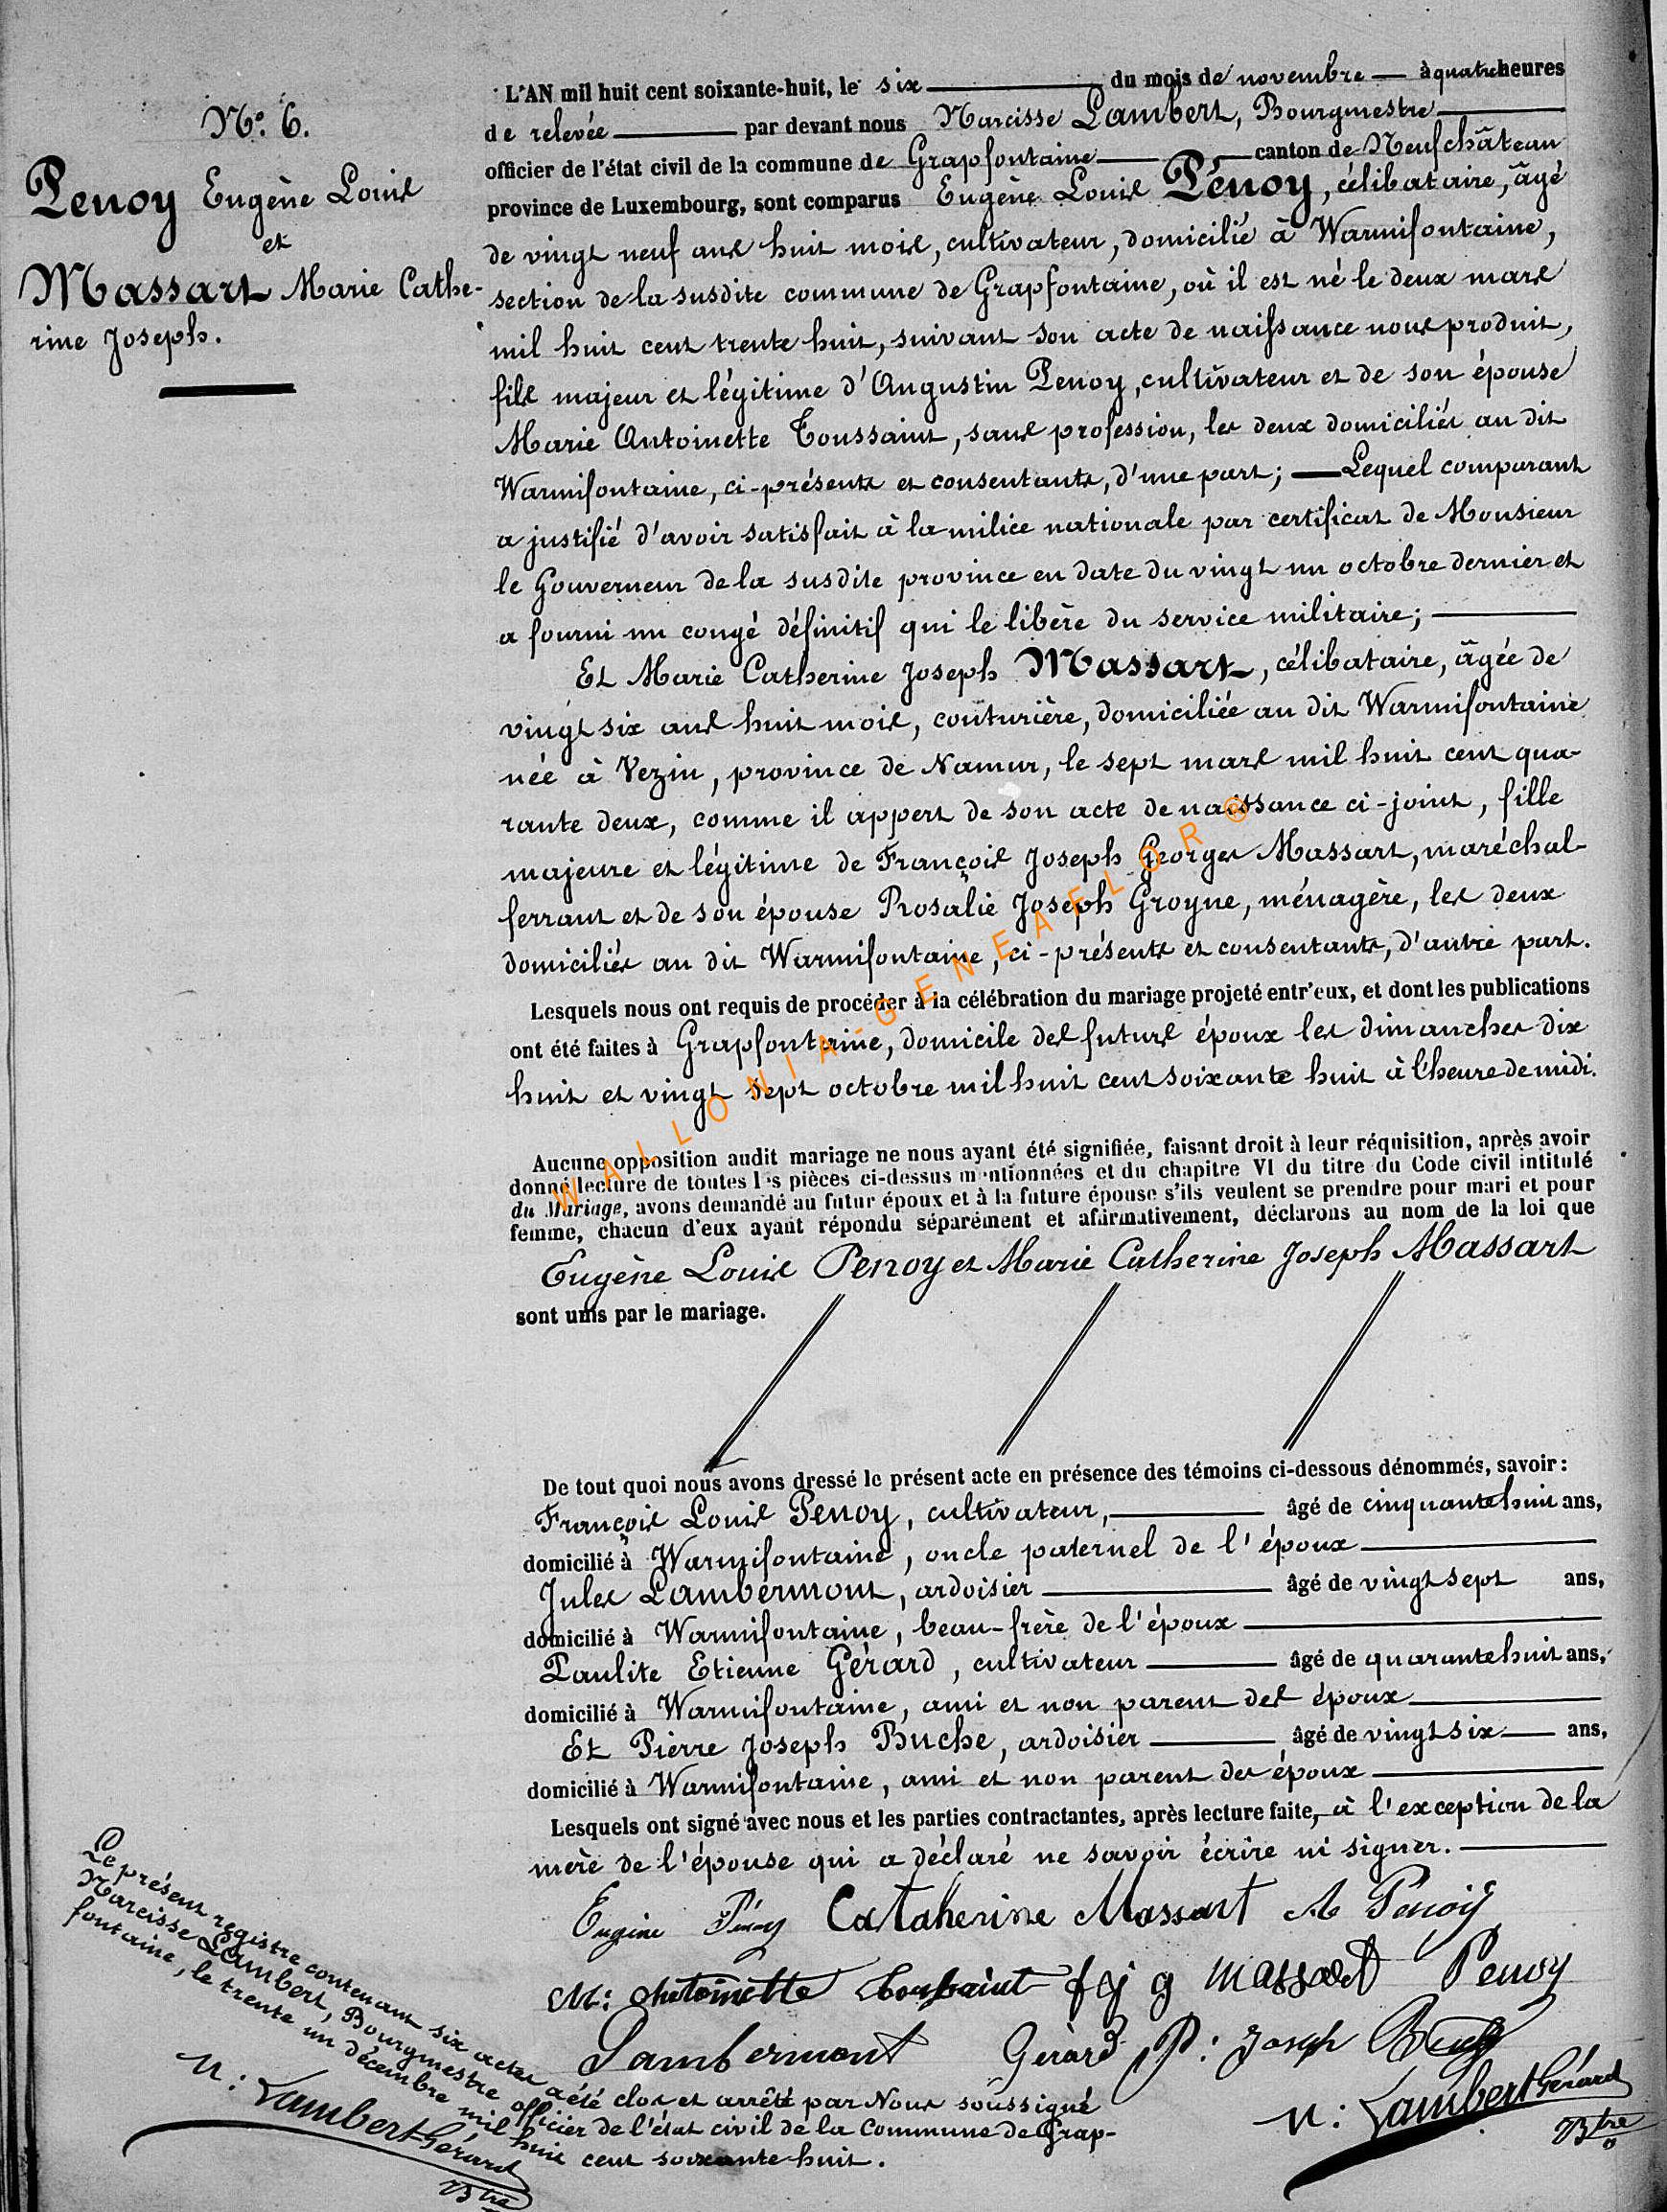 N°. 6.
Penoy Eugène Louis
et
Massart Marie Cathe-
rine Joseph.
L'AN mil huit cent soixante-huit, le six du mois de novembre à quatre heures
de relevée par devant nous Narcisse Lambert, Bourgmestre
officier de l'état civil de la commune de Grapfontaine canton de Neufchâteau
province de Luxembourg, sont comparus Eugène Louis Pénoy, célibataire, âgé
de vingt neuf ans huit mois, cultivateur, domicilié à Warmifontaine,
section de la susdite commune de Grapfontaine, où il est né le deux mars
mil huit cent trente huit, suivant son acte de naissance nous produit,
fils majeur et légitime d'Augustin Penoy, cultivateur et de son épouse
Marie Antoinette Toussaint, sans profession, les deux domiciliés au dit
Warmifontaine, ci-présents et consentants, d'une part; — Lequel comparant
a justifié d'avoir satisfait à la milice nationale par certificat de Monsieur
le Gouverneur de la susdite province en date du vingt un octobre dernier et
a fourni un congé définitif qui le libère du service militaire;
Et Marie Catherine Joseph Massart, célibataire, âgée de
vingt six ans huit mois, couturière, domiciliée au dit Warmifontaine
née à Vezin, province de Namur, le sept mars mil huit cent qua-
rante deux, comme il appert de son acte de naissance ci-joint, fille
majeure et légitime de François Joseph Georges Massart, maréchal-
ferrant et de son épouse Rosalie Joseph Groyne, ménagère, les deux
domiciliés au dit Warmifontaine, ci-présents et consentants, d'autre part.
Lesquels nous ont requis de procéder à la célébration du mariage projeté entr'eux, et dont les publications
ont été faites à Grapfontaine, domicile des futurs époux les dimanches dix
huit et vingt sept octobre mil huit cent soixante huit à l'heure de midi.
WALLONIA-GENEAFLOR®
Aucune opposition audit mariage ne nous ayant été signifiée, faisant droit à leur réquisition, après avoir
donné lecture de toutes les pièces ci-dessus mentionnées et du chapitre VI du titre du Code civil intitulé
du Mariage, avons demandé au futur époux et à la future épouse s'ils veulent se prendre pour mari et pour
femme, chacun d'eux ayant répondu séparément et affirmativement, déclarons au nom de la loi que
Eugène Louis Penoy et Marie Catherine Joseph Massart
sont unis par le mariage.
De tout quoi nous avons dressé le présent acte en présence des témoins ci-dessous dénommés, savoir:
François Louis Penoy, cultivateur, âgé de cinquante huit ans,
domicilié à Warmifontaine, oncle paternel de l'époux
Jules Lambermont, ardoisier âgé de vingt sept ans,
domicilié à Warmifontaine, beau-frère de l'époux
Paulite Etienne Gérard, cultivateur âgé de quarante huit ans,
domicilié à Warmifontaine, ami et non parent des époux
Et Pierre Joseph Buche, ardoisier âgé de vingt six ans,
domicilié à Warmifontaine, ami et non parent des époux
Lesquels ont signé avec nous et les parties contractantes, après lecture faite, à l'exception de la
mère de l'épouse qui a déclaré ne savoir écrire ni signer.
Eugène Pénoy Cataherine Massart A Penoy
M: Antoinette Toussaint f j g massart Penoy
Lambermont Gérard P: Joseph Buche
N: Lambert Gérard
Btre
Le présent registre contenant six actes a été clos et arrêté par Nous soussigné
Narcisse Lambert, Bourgmestre officier de l'état civil de la Commune de Grap-
fontaine, le trente un décembre mil huit cent soixante huit.
N: Lambert Gérard
Btre